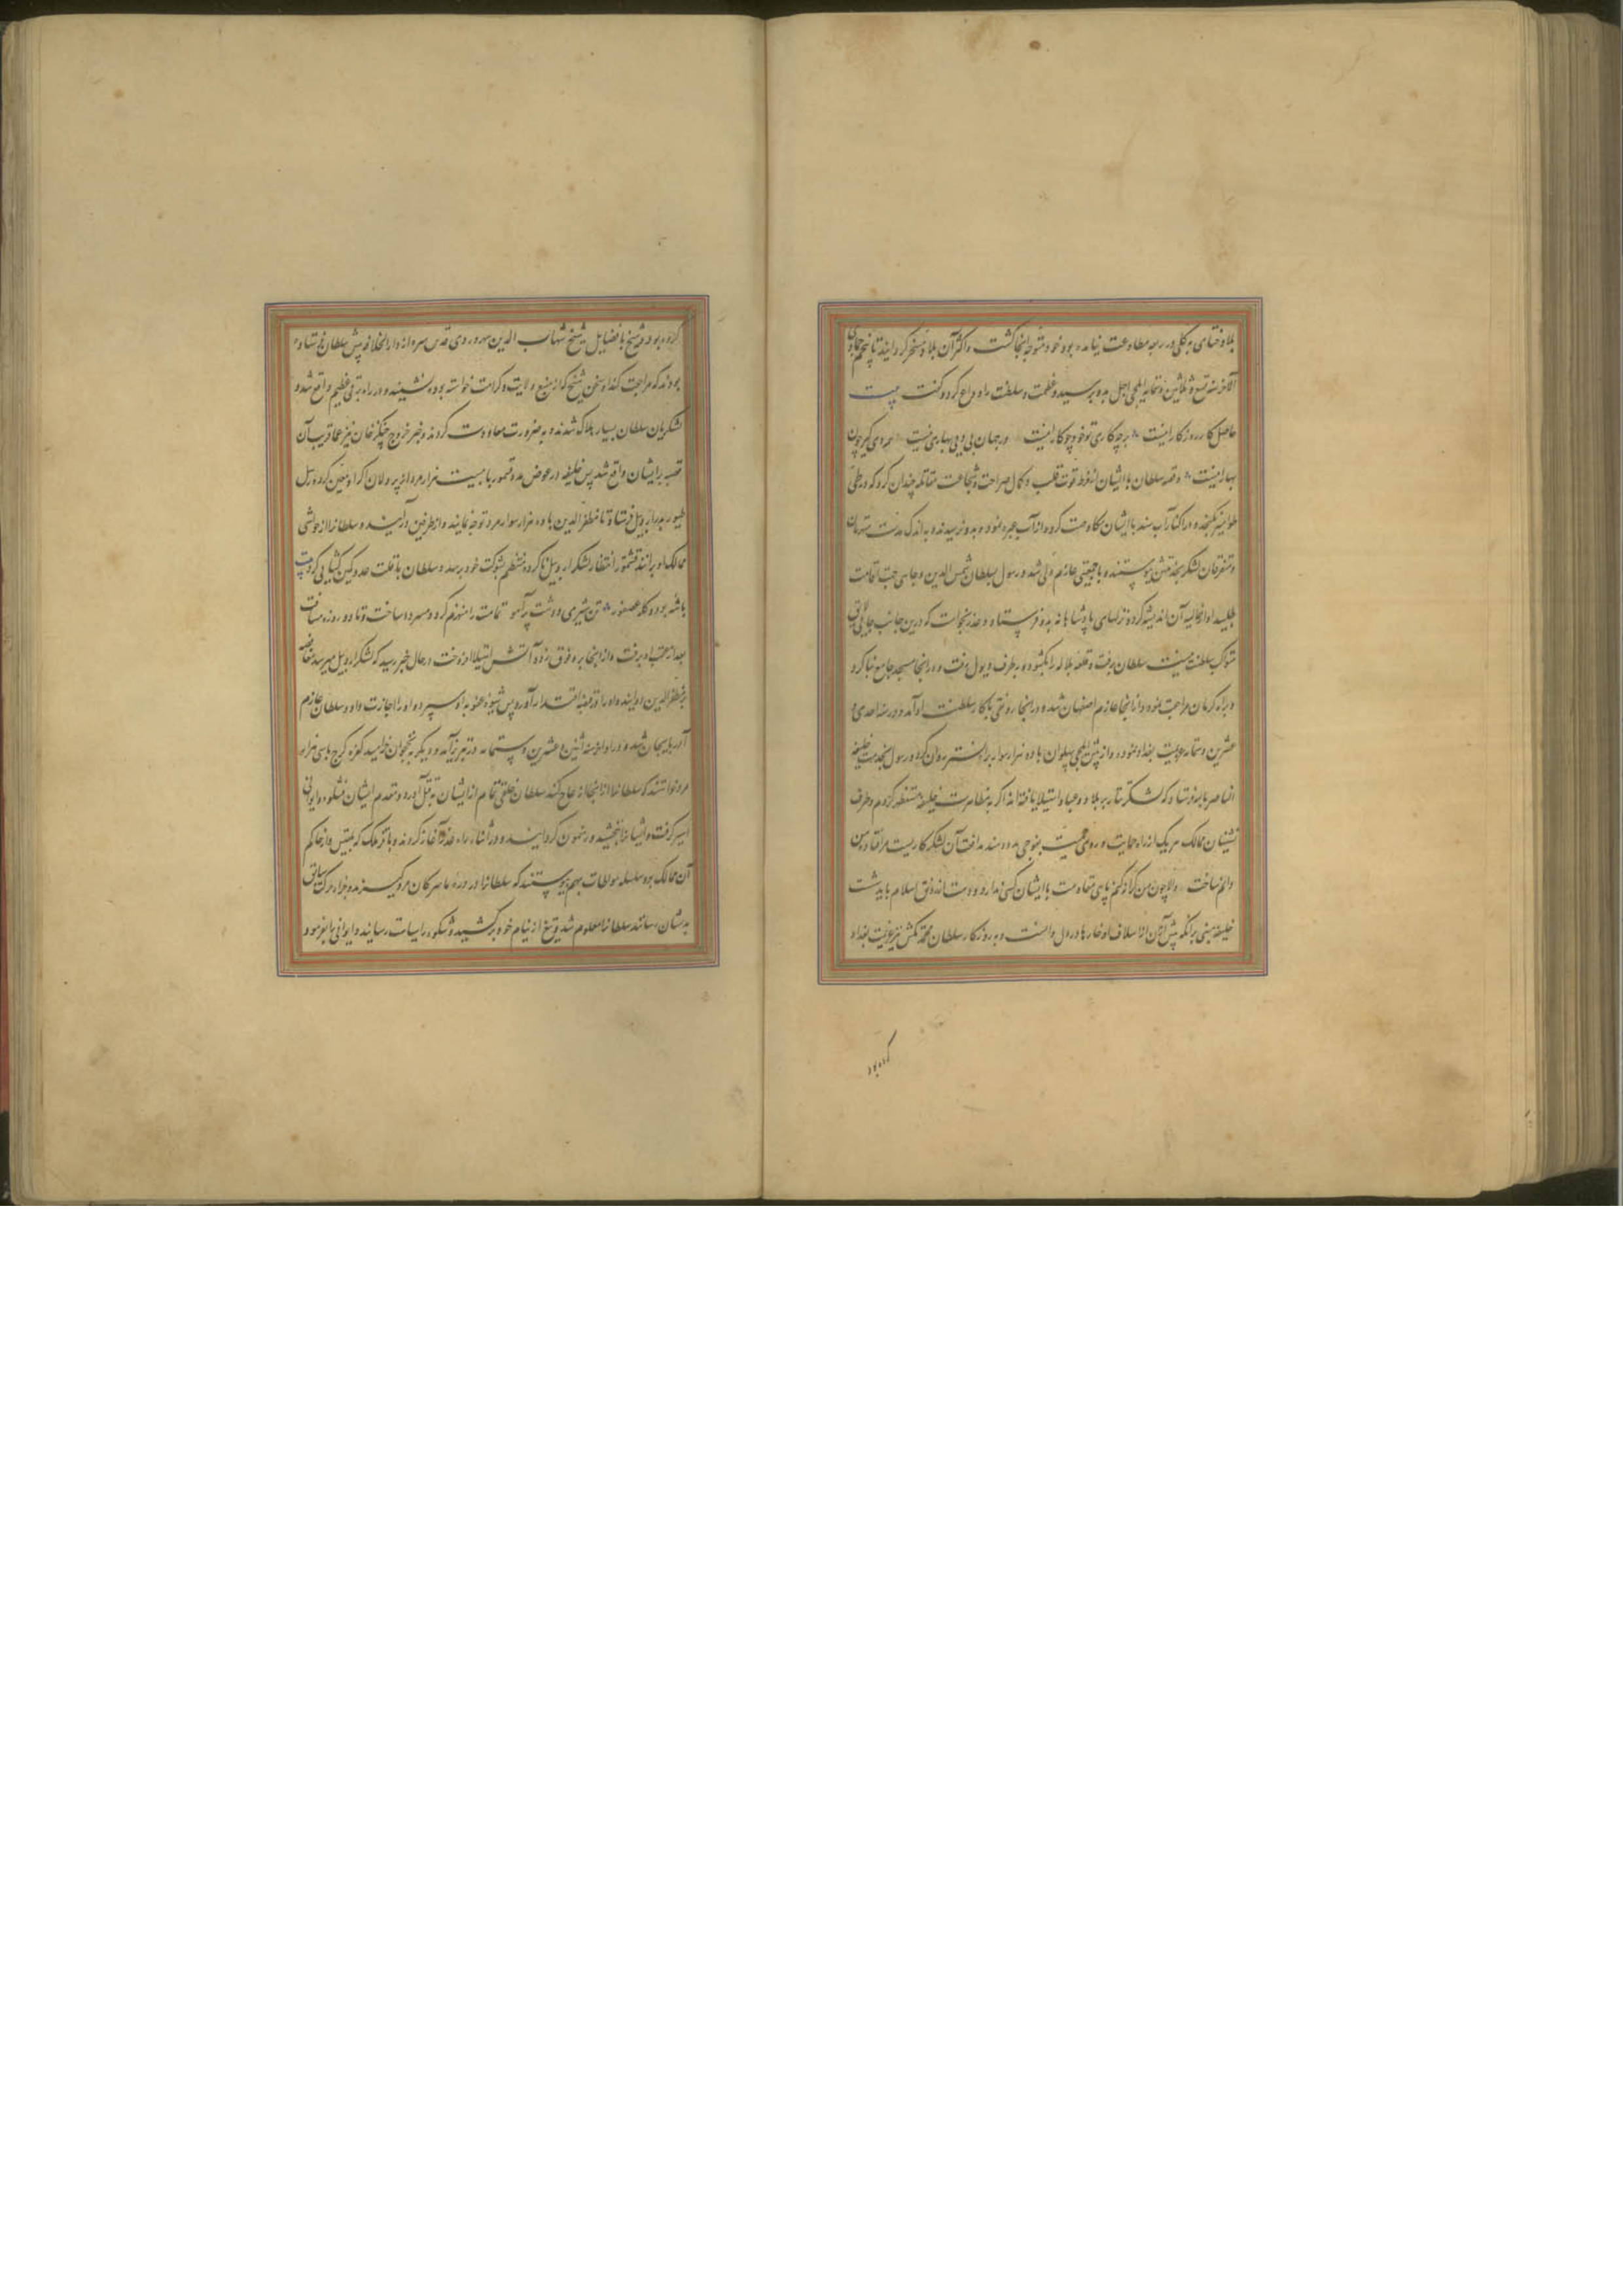 بلاد ختای به کلی در ربقه مطاوعت نیامده بود خود متوجه آنجا گشت و اکثر آن بلاد مسخر گردانید تا پنجم جمادی
الآخر سنه تسع و ثلاثین و ستمایه ایلچی اجل بدو برسید و عظمت و سلطنت را وداع کرد و گفت بیت
حاصل کار روزگار اینست بر چه کاری تو خود چو کار اینست در جهان بی وی بهاری نیست
بهار اینست و قصه سلطان با ایشان از فرط قوت قلب و کمال صراحت و شجاعت مقاتله چندان کرد که در طی
طوامیر نگنجد و در کنار آب سند با ایشان مکاوحت کرده از آب عبره نمود و بدو نرسیدند و به اندک مدت
و متفرقان لشکر بخدمتش پیوستند و با جمعیتی عازم دلی شد و رسول بسلطان شمس الدین و جای جهت اقامت
طلبید او از غایله آن اندیشه کرد و نزلهای پادشاهانه بدو فرستاد و عذر خواست که درین جانب جایی لایق
متوکب سلطنت نیست سلطان برفت و قلعه بلاله را بگشود و بر طرف دیول رفت و در آنجا مسجد جامع بنا کرد
و براه کرمان مراجعت نمود و از آنجا عازم اصفهان شد و در آنجا رونقی با کار سلطنت او آمد و در سنه احدی و
عشرین و ستمایه عزیمت بغداد نمود و از پیش ایلچی پهلوان با دو هزار سوار براه تستر روان کرد و رسول بخدمت خلیفه
الناصر بالله فرستاد که لشکر تتار بر بلاد و عباد استیلا یافته اند اگر به مظاهرت خلیفه مستظهر گردم و طرف
نشینان ممالک هر یک از راه حمایت و روی حمیت بنوعی مدد دهند مدافعت آن لشکر کاریست مرا افتاده من
دانم ساخت والا چون من کرانه کنم پای مقاومت با ایشان کسی ندارد و دست از رونق اسلام باید شست
خلیفه مبنی بر آنکه پیش ازین از اسلاف او خارها در دل داشت و به روزگار سلطان محمد تکش نیز عزیمت بغداد
کرده بود
کرده بود و شیخ با فضایل شیخ شهاب الدین سهروردی قدس سره از دار الخلافه پیش سلطان فرستاده
بودند که مراجعت کند او سخن شیخ که از منبع ولایت و کرامت خواسته بود نشنید و در راه برفی عظیم واقع شد و
لشکریان سلطان بسیار هلاک شدند و به ضرورت معاودت کردند و خبر خروج چنگیز خان نیز عما قریب آن
قصبه بر ایشان واقع شد پس خلیفه در عوض مدد قشتمور با بیست هزار مرد از پر دلان اکراد معین کرد و رسل
طیور بدار اربیل فرستاد تا مظفر الدین با ده هزار سوار مرد توجه نمایند و از طرفین درآیند و سلطان را از حواشی
ممالک او برانند قشتمور انتظار لشکر اربیل ناکرده مستظهر بشوکت خود برسید و سلطان با قلت عدد کمین گشایی کرد بیت
باشه بود و گله عصفور تن شیری و دشت پر آهو تمامت را منهزم کرد و مسرور ساخت و تا دو روزه مسافت
بعد از عقب او برفت و از آنجا بر دقوق زد و آتش استیلا افروخت در حال خبر رسید که لشکر اربیل میرسد مغافصه
بر مظفر الدین دوانید و او را در قبضه اقتدار آورد پس شیوه عفو به او سپرد و او را اجازت داد و سلطان عازم
آذربایجان شد و در اوایل سنه اثنین و عشرین و ستمایه در تبریز آمد و دیگر به نخجوان خرامید کفره کرج با سی هزار
مرد خواستند که سلطان را از آنجا از عاج کنند سلطان خلقی تمام از ایشان به قتل آورد و مقدم ایشان شلکوه و ایوانی
اسیر گرفت و ایشان را ببخشید و رهنمون گردانید و در اثناء راه غدر آغاز کردند و با قیز ملک که بلقیس وار حاکم
آن ممالک بود سلسله مواطات بهم پیوستند که سلطان را در دره مارکان مروکیز بدو جزاء مرگ سابق
بدیشان رسانند سلطان را معلوم شد تیغ از نیام خود برکشید و شلکوه را بسیاست رسانید و ایوانی را بفرمود